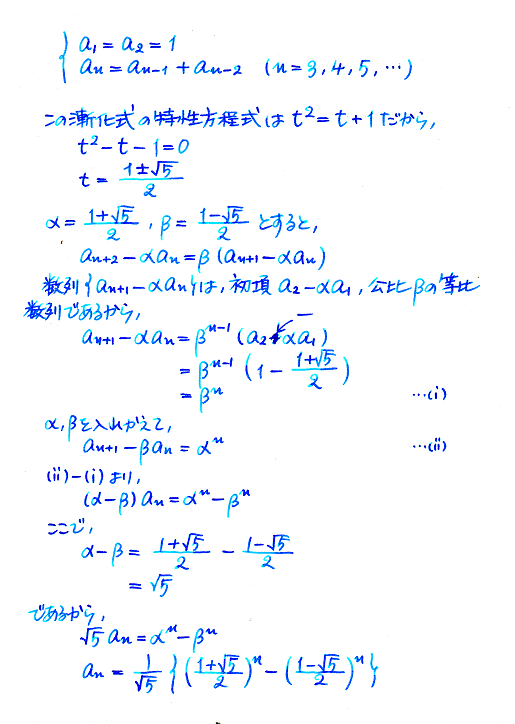 a₁ = a₂ = 1
aₙ = aₙ₋₁ + aₙ₋₂ (n = 3, 4, 5, …)
この漸化式の特性方程式は t² = t + 1 だから,
t² − t − 1 = 0
t = (1±√5)/2
α = (1+√5)/2 , β = (1−√5)/2 とすると,
aₙ₊₂ − αaₙ = β (aₙ₊₁ − αaₙ)
数列{aₙ₊₁ − αaₙ}は, 初項 a₂ − αa₁ , 公比 β の等比
数列であるから,
aₙ₊₁ − αaₙ = βⁿ⁻¹ (a₂ − αa₁)
= βⁿ⁻¹ (1 − (1+√5)/2)
= βⁿ …(i)
α, β を入れかえて,
aₙ₊₁ − βaₙ = αⁿ …(ii)
(ii) − (i) より,
(α − β) aₙ = αⁿ − βⁿ
ここで,
α − β = (1+√5)/2 − (1−√5)/2
= √5
であるから,
√5 aₙ = αⁿ − βⁿ
aₙ = 1/√5 {((1+√5)/2)ⁿ − ((1−√5)/2)ⁿ}